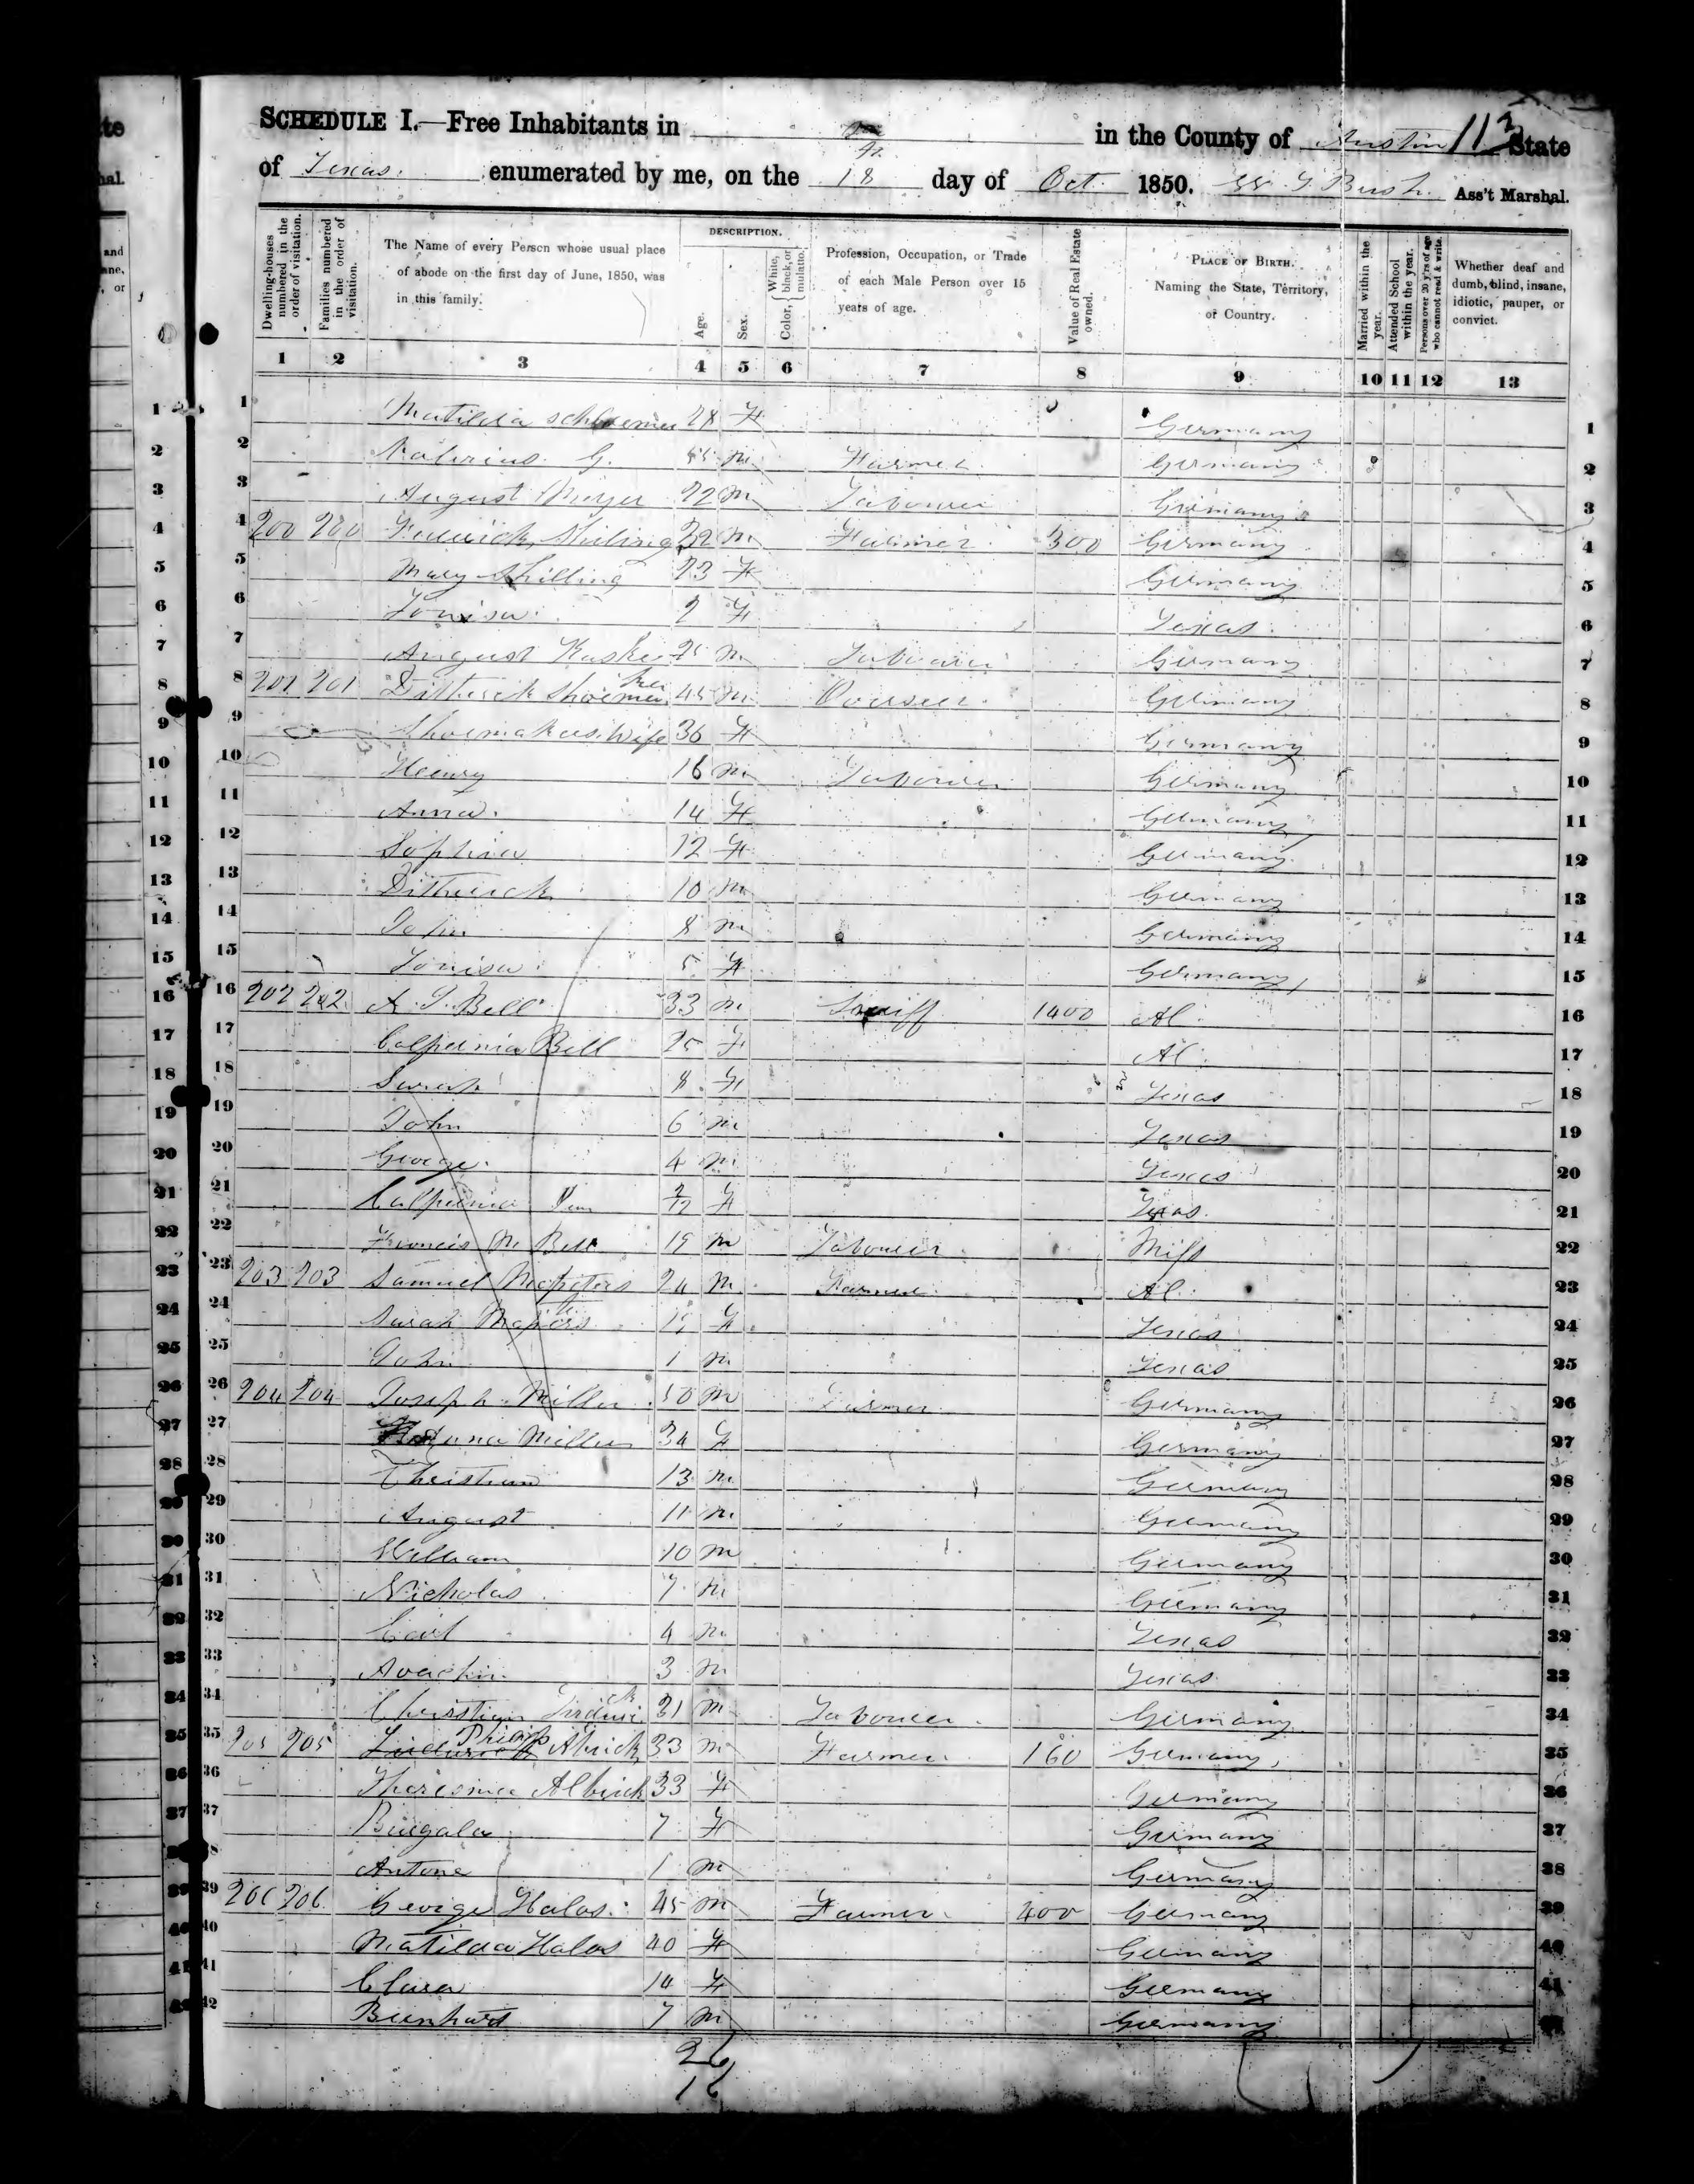 SCHEDULE I.—Free Inhabitants in in the County of Austin 113 State
of Texas. enumerated by me, on the 18 day of Oct. 1850. Bush Ass't Marshal.
Dwelling-houses numbered in the order of visitation.
Families numbered in the order of visitation.
The Name of every Person whose usual place of abode on the first day of June, 1850, was in this family.
DESCRIPTION.
Age.
Sex.
Color, { White, black, or mulatto.
Profession, Occupation, or Trade of each Male Person over 15 years of age.
Value of Real Estate owned.
PLACE OF BIRTH. Naming the State, Territory, or Country.
Married within the year.
Attended School within the year.
Persons over 20 y'rs of age who cannot read & write.
Whether deaf and dumb, blind, insane, idiotic, pauper, or convict.
1 2 3 4 5 6 7 8 9 10 11 12 13
1 Matilda 28 F Germany 1
2 G. m Farmer Germany 2
3 August Meyer 22 m Labourer Germany 3
4 200 200 Shiling 32 m Farmer 300 Germany 4
5 Mary Shilling 23 F Germany 5
6 Louisa 2 F Texas 6
7 August 25 m Labourer Germany 7
8 201 201 Ditherick Shoemaker 45 m Overseer Germany 8
9 Shoemakers Wife 36 F Germany 9
10 Henry 16 m Labourer Germany 10
11 Anna 14 F Germany 11
12 Sophia 12 F Germany 12
13 Ditherick 10 m Germany 13
14 John 8 m Germany 14
15 Louisa 5 F Germany 15
16 202 202 Bell 33 m Sheriff 1400 Al 16
17 Calpernia Bell 25 F Al. 17
18 Sarah 8 F Texas 18
19 John 6 m Texas 19
20 George 4 m Texas 20
21 Calpernia 2/12 F Texas 21
22 Francis M. Bell 19 m Labourer Miss 22
23 203 203 Samuel 24 m Farmer Al. 23
24 Sarah 19 F Texas 24
25 John 1 m Texas 25
26 204 204 Joseph Miller 50 m Farmer Germany 26
27 Anna Miller 34 F Germany 27
28 Christian 13 m Germany 28
29 August 11 m Germany 29
30 William 10 m Germany 30
31 Nicholas 7 m Germany 31
32 Carl 4 m Texas 32
33 3 m Texas 33
34 Christian 31 m Labourer Germany 34
35 205 205 Philip Albrick 33 m Farmer 160 Germany 35
36 Albrick 33 F Germany 36
37 7 F Germany 37
38 Antone 1 m Germany 38
39 206 206 George Halas 45 m Farmer 400 Germany 39
40 Matilda Halas 40 F Germany 40
41 Clara 14 F Germany 41
42 Bernhard 7 m Germany 42
26
16